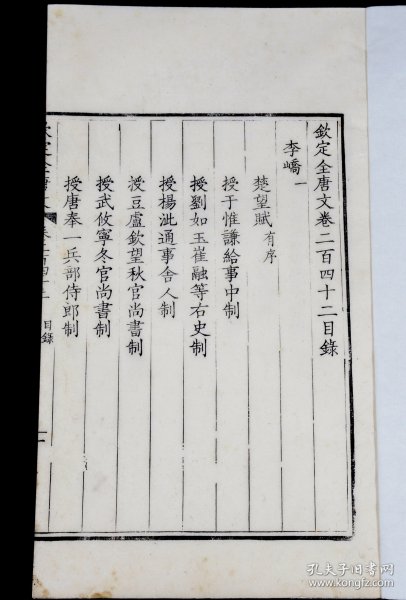 欽定全唐文卷二百四十二目錄
李嶠一
楚望賦有序
授于惟謙給事中制
授劉如玉崔融等右史制
授楊泚通事舍人制
授豆盧欽望秋官尚書制
授武攸寧冬官尚書制
授唐奉一兵部侍郎制
目錄
孔夫子旧书网